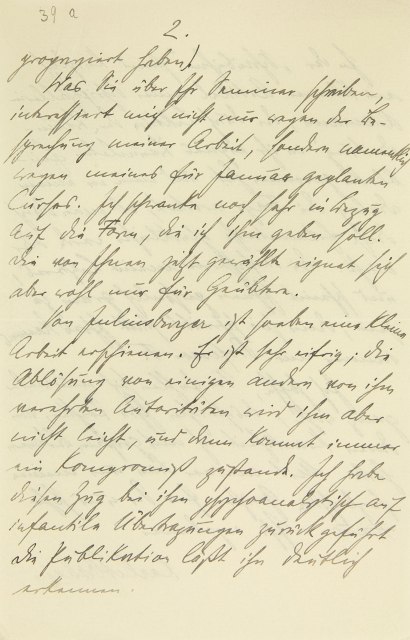 39 a
2.
propagiert haben!
Was Sie über Ihr Seminar schreiben,
interessiert mich nicht nur wegen der Be-
sprechung meiner Arbeit, sondern namentlich
wegen meines für Januar geplanten
Curses. Ich schwanke noch sehr in Bezug
auf die Form, die ich ihm geben soll.
Die von Ihnen jetzt gewählte eignet sich
aber wohl nur für Geübtere.
Von Juliusburger ist soeben eine kleine
Arbeit erschienen. Er ist sehr eifrig; die
Ablösung von einigen andern von ihm
verehrten Autoritäten wird ihm aber
nicht leicht, und dann kommt immer
ein Kompromiß zustande. Ich habe
diesen Zug bei ihm psychoanalytisch auf
infantile Übertragungen zurückgeführt
Die Publikation läßt ihn deutlich
erkennen.